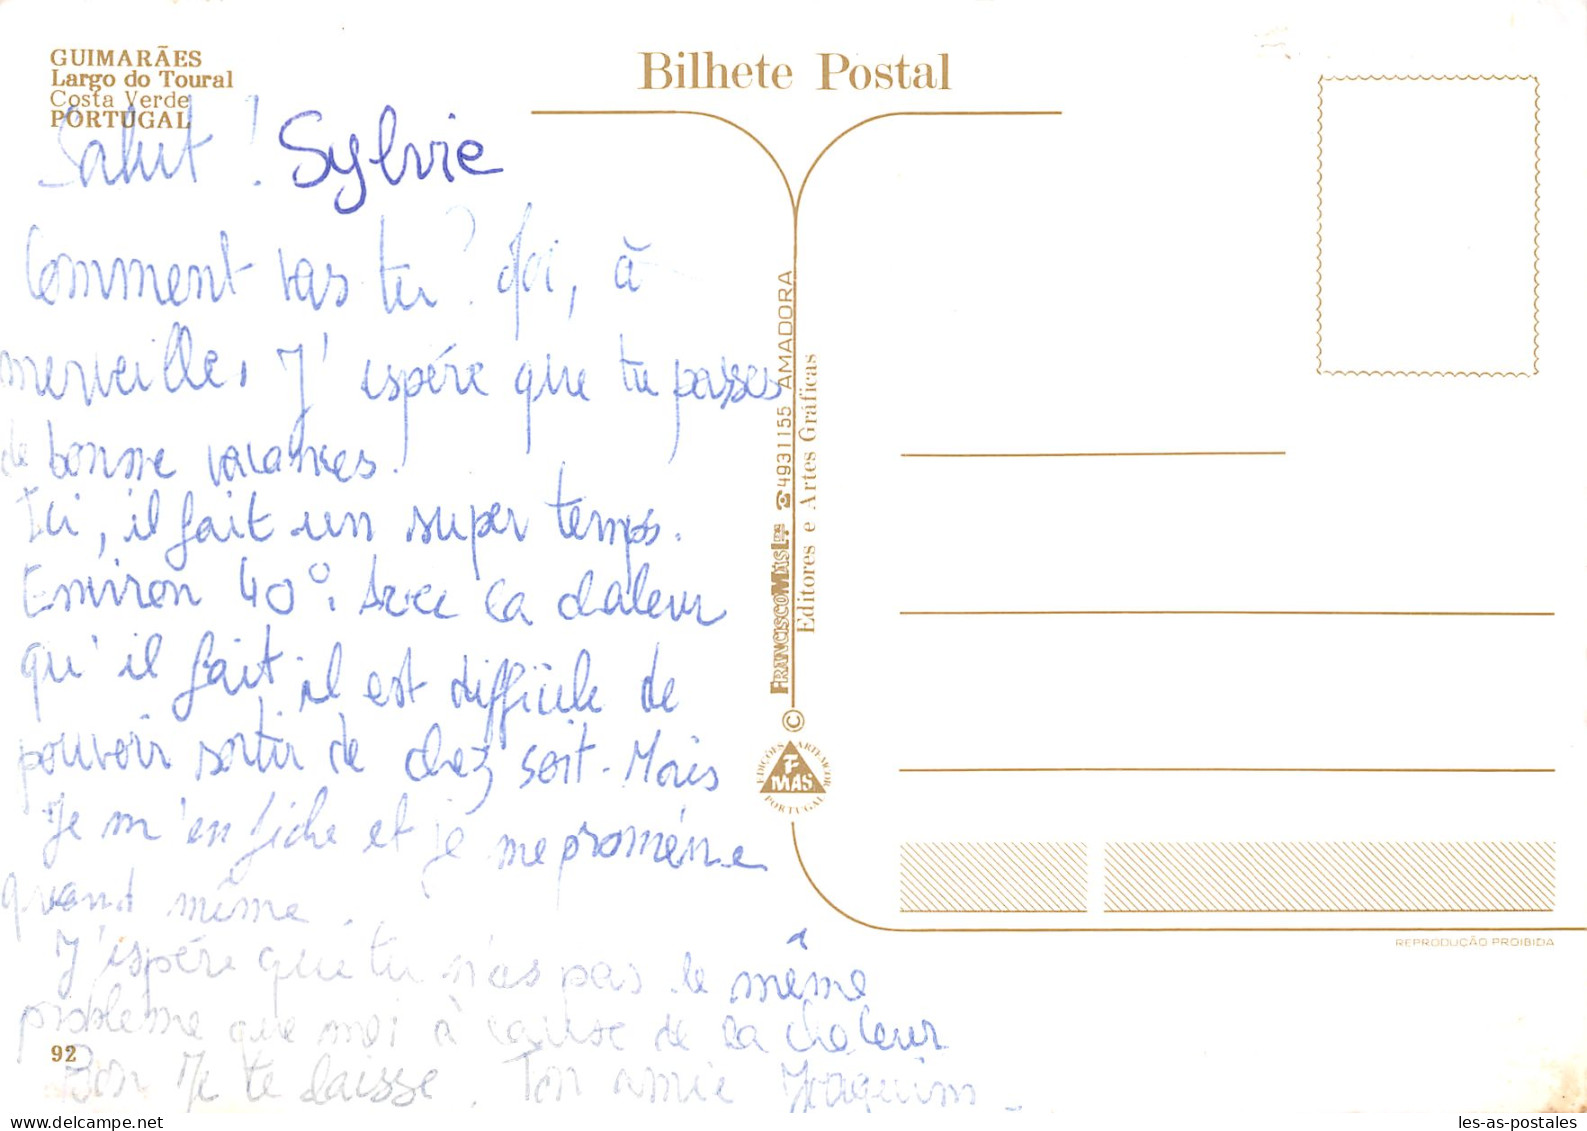 GUIMARÃES
Largo do Toural
Costa Verde
PORTUGAL
Bilhete Postal
Salut ! Sylvie
Comment vas tu ? Moi, à
merveille. J'espére que tu passes
de bonne vacances.
Ici, il fait un super temps.
Environ 40°. Avec la chaleur
qu'il fait il est difficile de
pouvoir sortir de chez soit. Mais
Je m'en fiche et je me proméne
quand même.
J'espére que tu n'as pas le même
probleme que moi à cause de la chaleur
Bon Je te laisse. Ton amie Joaquim
92
FRANCISCO MAS LDA ☎ 4931155 AMADORA
Editores e Artes Gráficas
©
EDIÇÕES ARTE MODER
F
MAS
PORTUGAL
REPRODUÇÃO PROIBIDA
les-as-postales